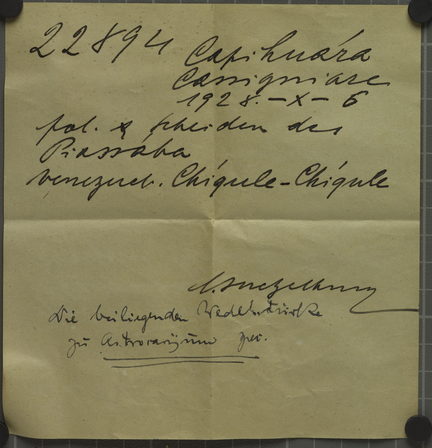 22894 Capihuára
Cassiquiare
1928.-X-6
fol. & Scheiden des
Piassaba
venezuel. Chíqule-Chíqule
Die beiliegenden Wedelstücke
zu Astrocaryum